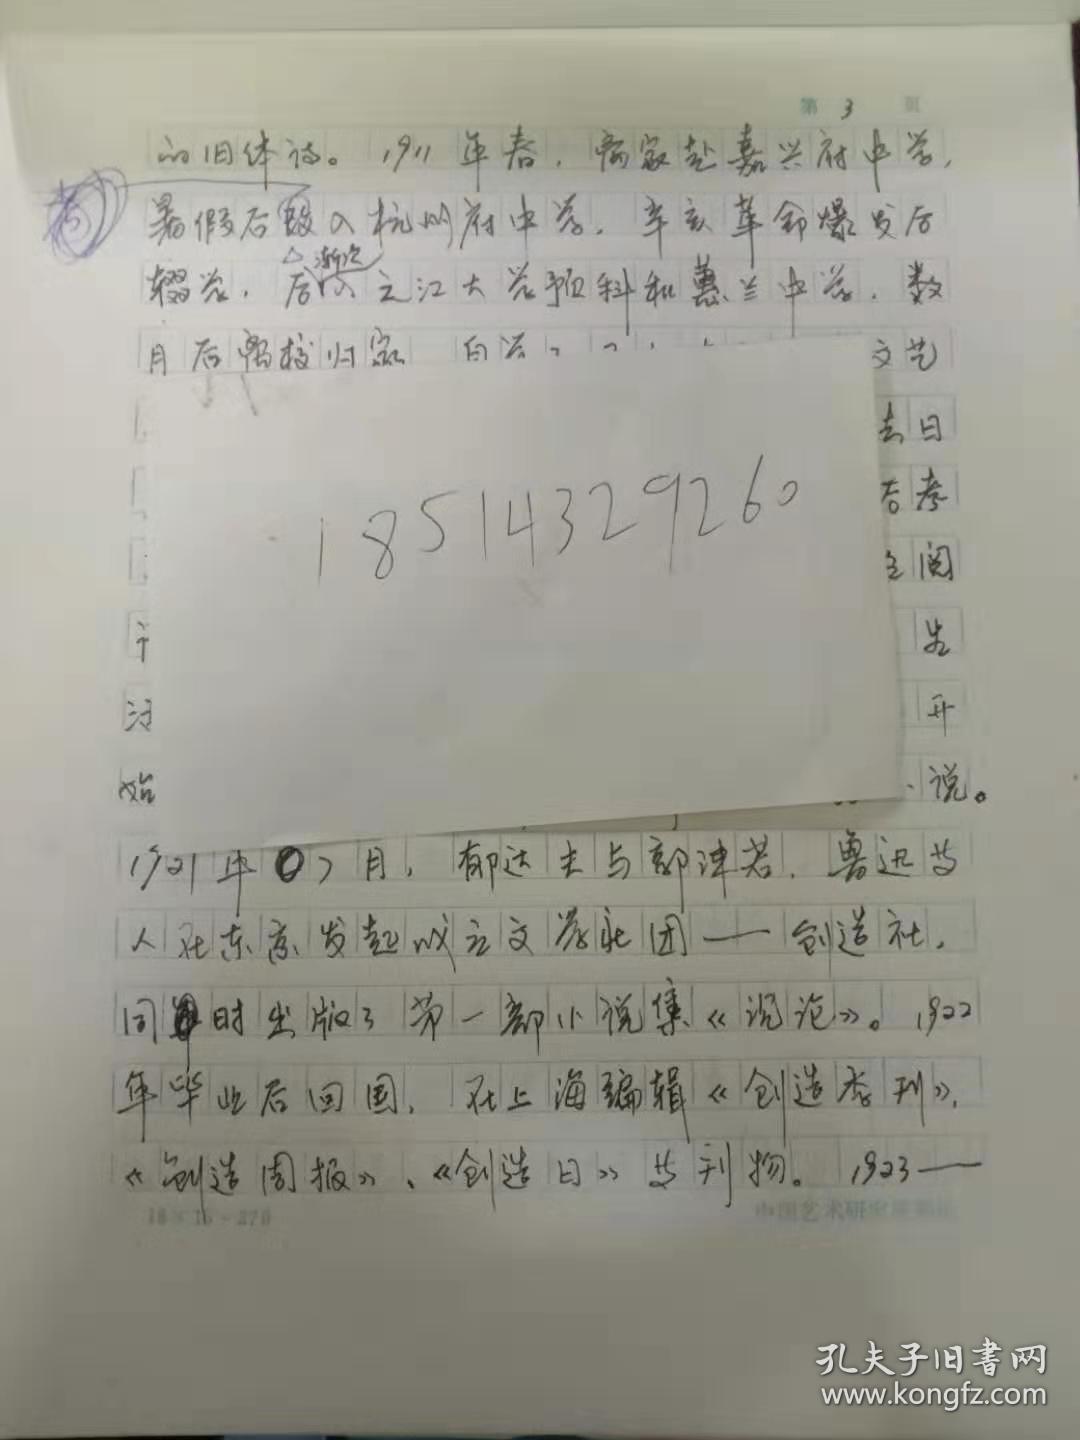 第 3 页
的旧体诗。1911年春，离家赴嘉兴府中学，
暑假后 入杭州府中学。辛亥革命爆发后
渐次
辍学，后入之江大学预科和蕙兰中学。数
月后离校归家 自 文艺
去日
后考
阅
先
开
始 说。
18514329260
1921年07月，郁达夫与郭沫若、鲁迅等
人在东京发起成立文学社团——创造社，
同时出版了第一部小说集《沉沦》。1922
年毕业后回国，在上海编辑《创造季刊》、
《创造周报》、《创造日》等刊物。1923——
中国艺术研究院
孔夫子旧書网
www.kongfz.com